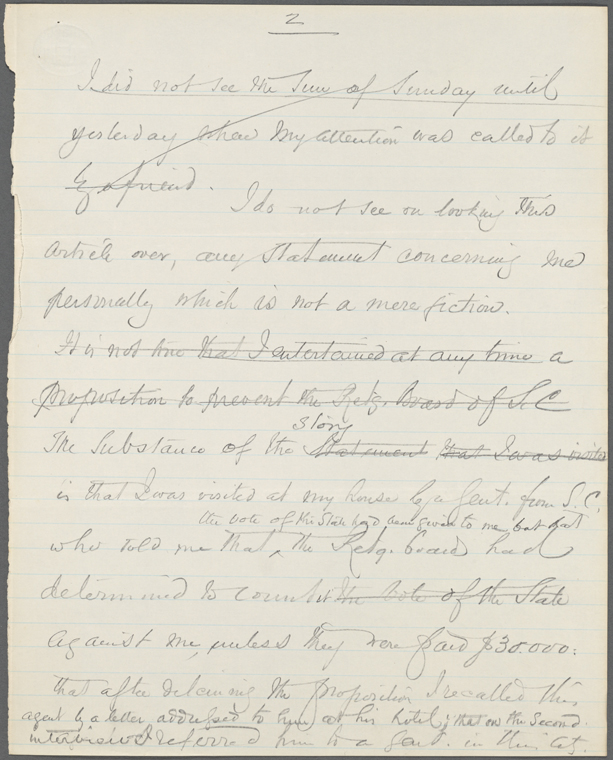 2
I did not see the Sun of Sunday until
yesterday when my attention was called to it
by a friend.
I do not see on looking this
article over, any statement concerning me
personally which is not a mere fiction.
It is not true that I entertained at any time a
proposition to prevent the Retg. Board of S.C
story
The substance of the statement that I was visited
is that I was visited at my house by a gent. from S.C.
the vote of the State had been given to me but that
who told me that ^ the Retg. Board had
determined to count it the vote of the State
against me, unless they were paid $30.000:
that after declining the proposition I recalled this
agent by a letter addressed to him at his hotel; that on the second
interview I referred him to a gent. in this City.